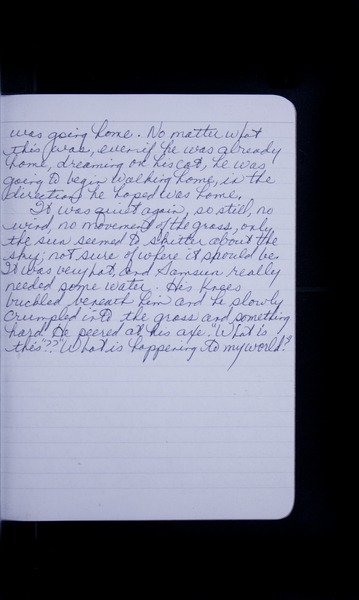 was going home. No matter what
this was, even if he was already
home, dreaming on his cot, he was
going to begin walking home, in the
direction he hoped was home.
It was quiet again, so still, no
wind, no movement of the grass, only
the sun seemed to skitter about the
sky, not sure of where it should be.
It was very hot and Samsun really
needed some water. His knees
buckled beneath him and he slowly
crumpled into the grass and something
hard. He peered at his axe. "What is
this"?? "What is happening to my world?"